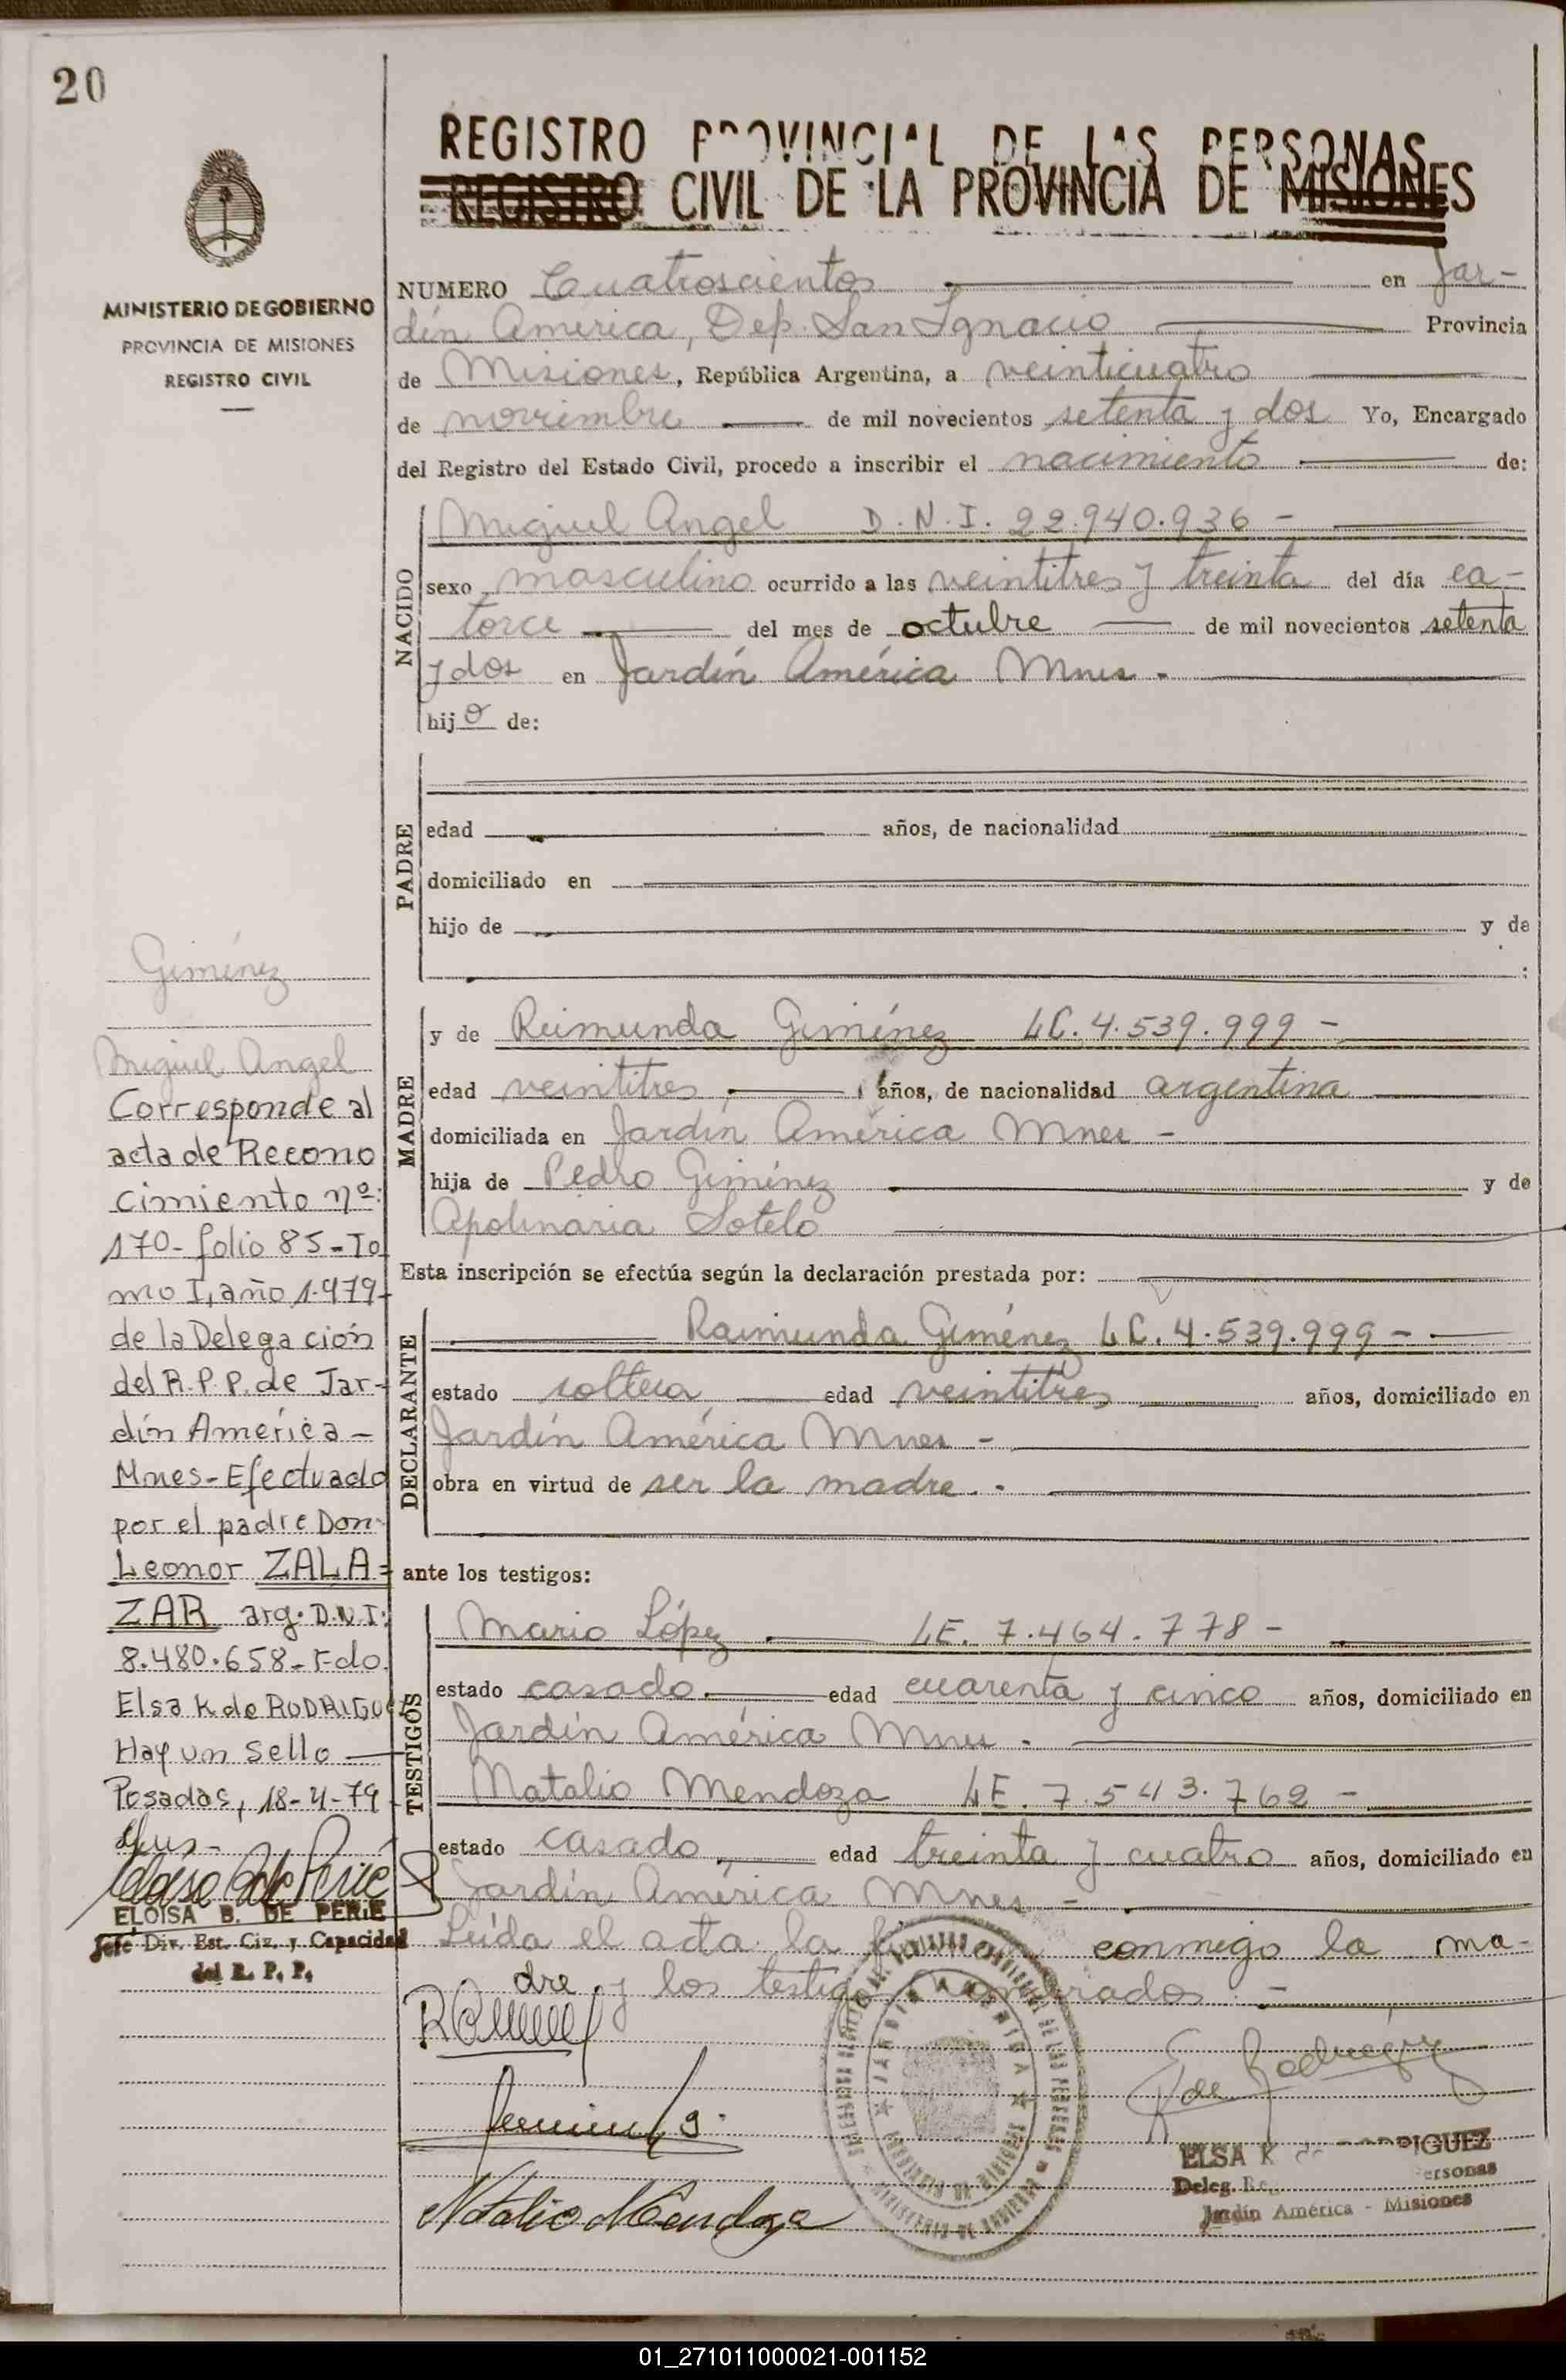 20
REGISTRO PROVINCIAL DE LAS PERSONAS
REGISTRO CIVIL DE LA PROVINCIA DE MISIONES
MINISTERIO DE GOBIERNO
PROVINCIA DE MISIONES
REGISTRO CIVIL
NUMERO Cuatroscientos en Jar-
dín America, Dep. San Ignacio Provincia
de Misiones, República Argentina, a veinticuatro
de noviembre de mil novecientos setenta y dos Yo, Encargado
del Registro del Estado Civil, procedo a inscribir el nacimiento de:
NACIDO
Miguel Angel D.N.I. 22.940.936 -
sexo masculino ocurrido a las veintitres y treinta del día ca-
torce del mes de octubre de mil novecientos setenta
y dos en Jardín América Mnes.
hijo de:
PADRE
edad años, de nacionalidad
domiciliado en
hijo de y de
:
MADRE
y de Reimunda Giménez LC. 4.539.999 -
edad veintitres años, de nacionalidad argentina
domiciliada en Jardín América Mnes -
hija de Pedro Giménez y de
Apolinaria Sotelo
Esta inscripción se efectúa según la declaración prestada por:
DECLARANTE
Raimunda Giménez LC. 4.539.999 -
estado soltera edad veintitres años, domiciliado en
Jardín América Mnes -
obra en virtud de ser la madre.
ante los testigos:
TESTIGOS
Mario López LE. 7.464.778 -
estado casado edad cuarenta y cinco años, domiciliado en
Jardín América Mnes.
Natalio Mendoza LE. 7.543.762 -
estado casado, edad treinta y cuatro años, domiciliado en
Jardín América Mnes -
Leída el acta la firman conmigo la ma-
dre y los testigos nombrados. -
Natalio Mendoza
E K de Rodriguez
ELSA K de RODRIGUEZ
Deleg. Re ersonas
Jardín América - Misiones
Giménez
Miguel Angel
Corresponde al
acta de Recono
cimiento nº:
170 - folio 85 - To
mo I, año 1.979-
de la Delegación
del R.P.P. de Jar-
dín América -
Mnes - Efectuado
por el padre Don
Leonor ZALA=
ZAR arg. D.N.I:
8.480.658 - Fdo.
Elsa K de RODRIGUEZ
Hay un sello
Posadas, 18-4-79
ELOISA B. DE PERIE
Jefe Div. Est. Civ. y Capacidad
del R. P. P.
01_271011000021-001152